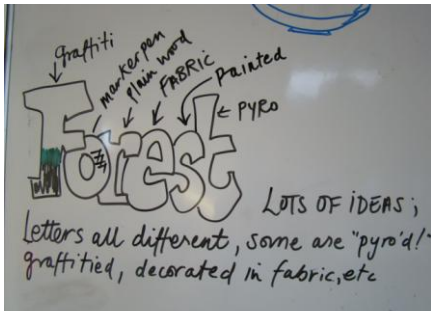 graffiti
markerpen
plain word
FABRIC
painted
PYRO
Forest
LOTS OF IDEAS;
Letters all different, some are "pyro'd!"
graffitied, decorated in fabric, etc